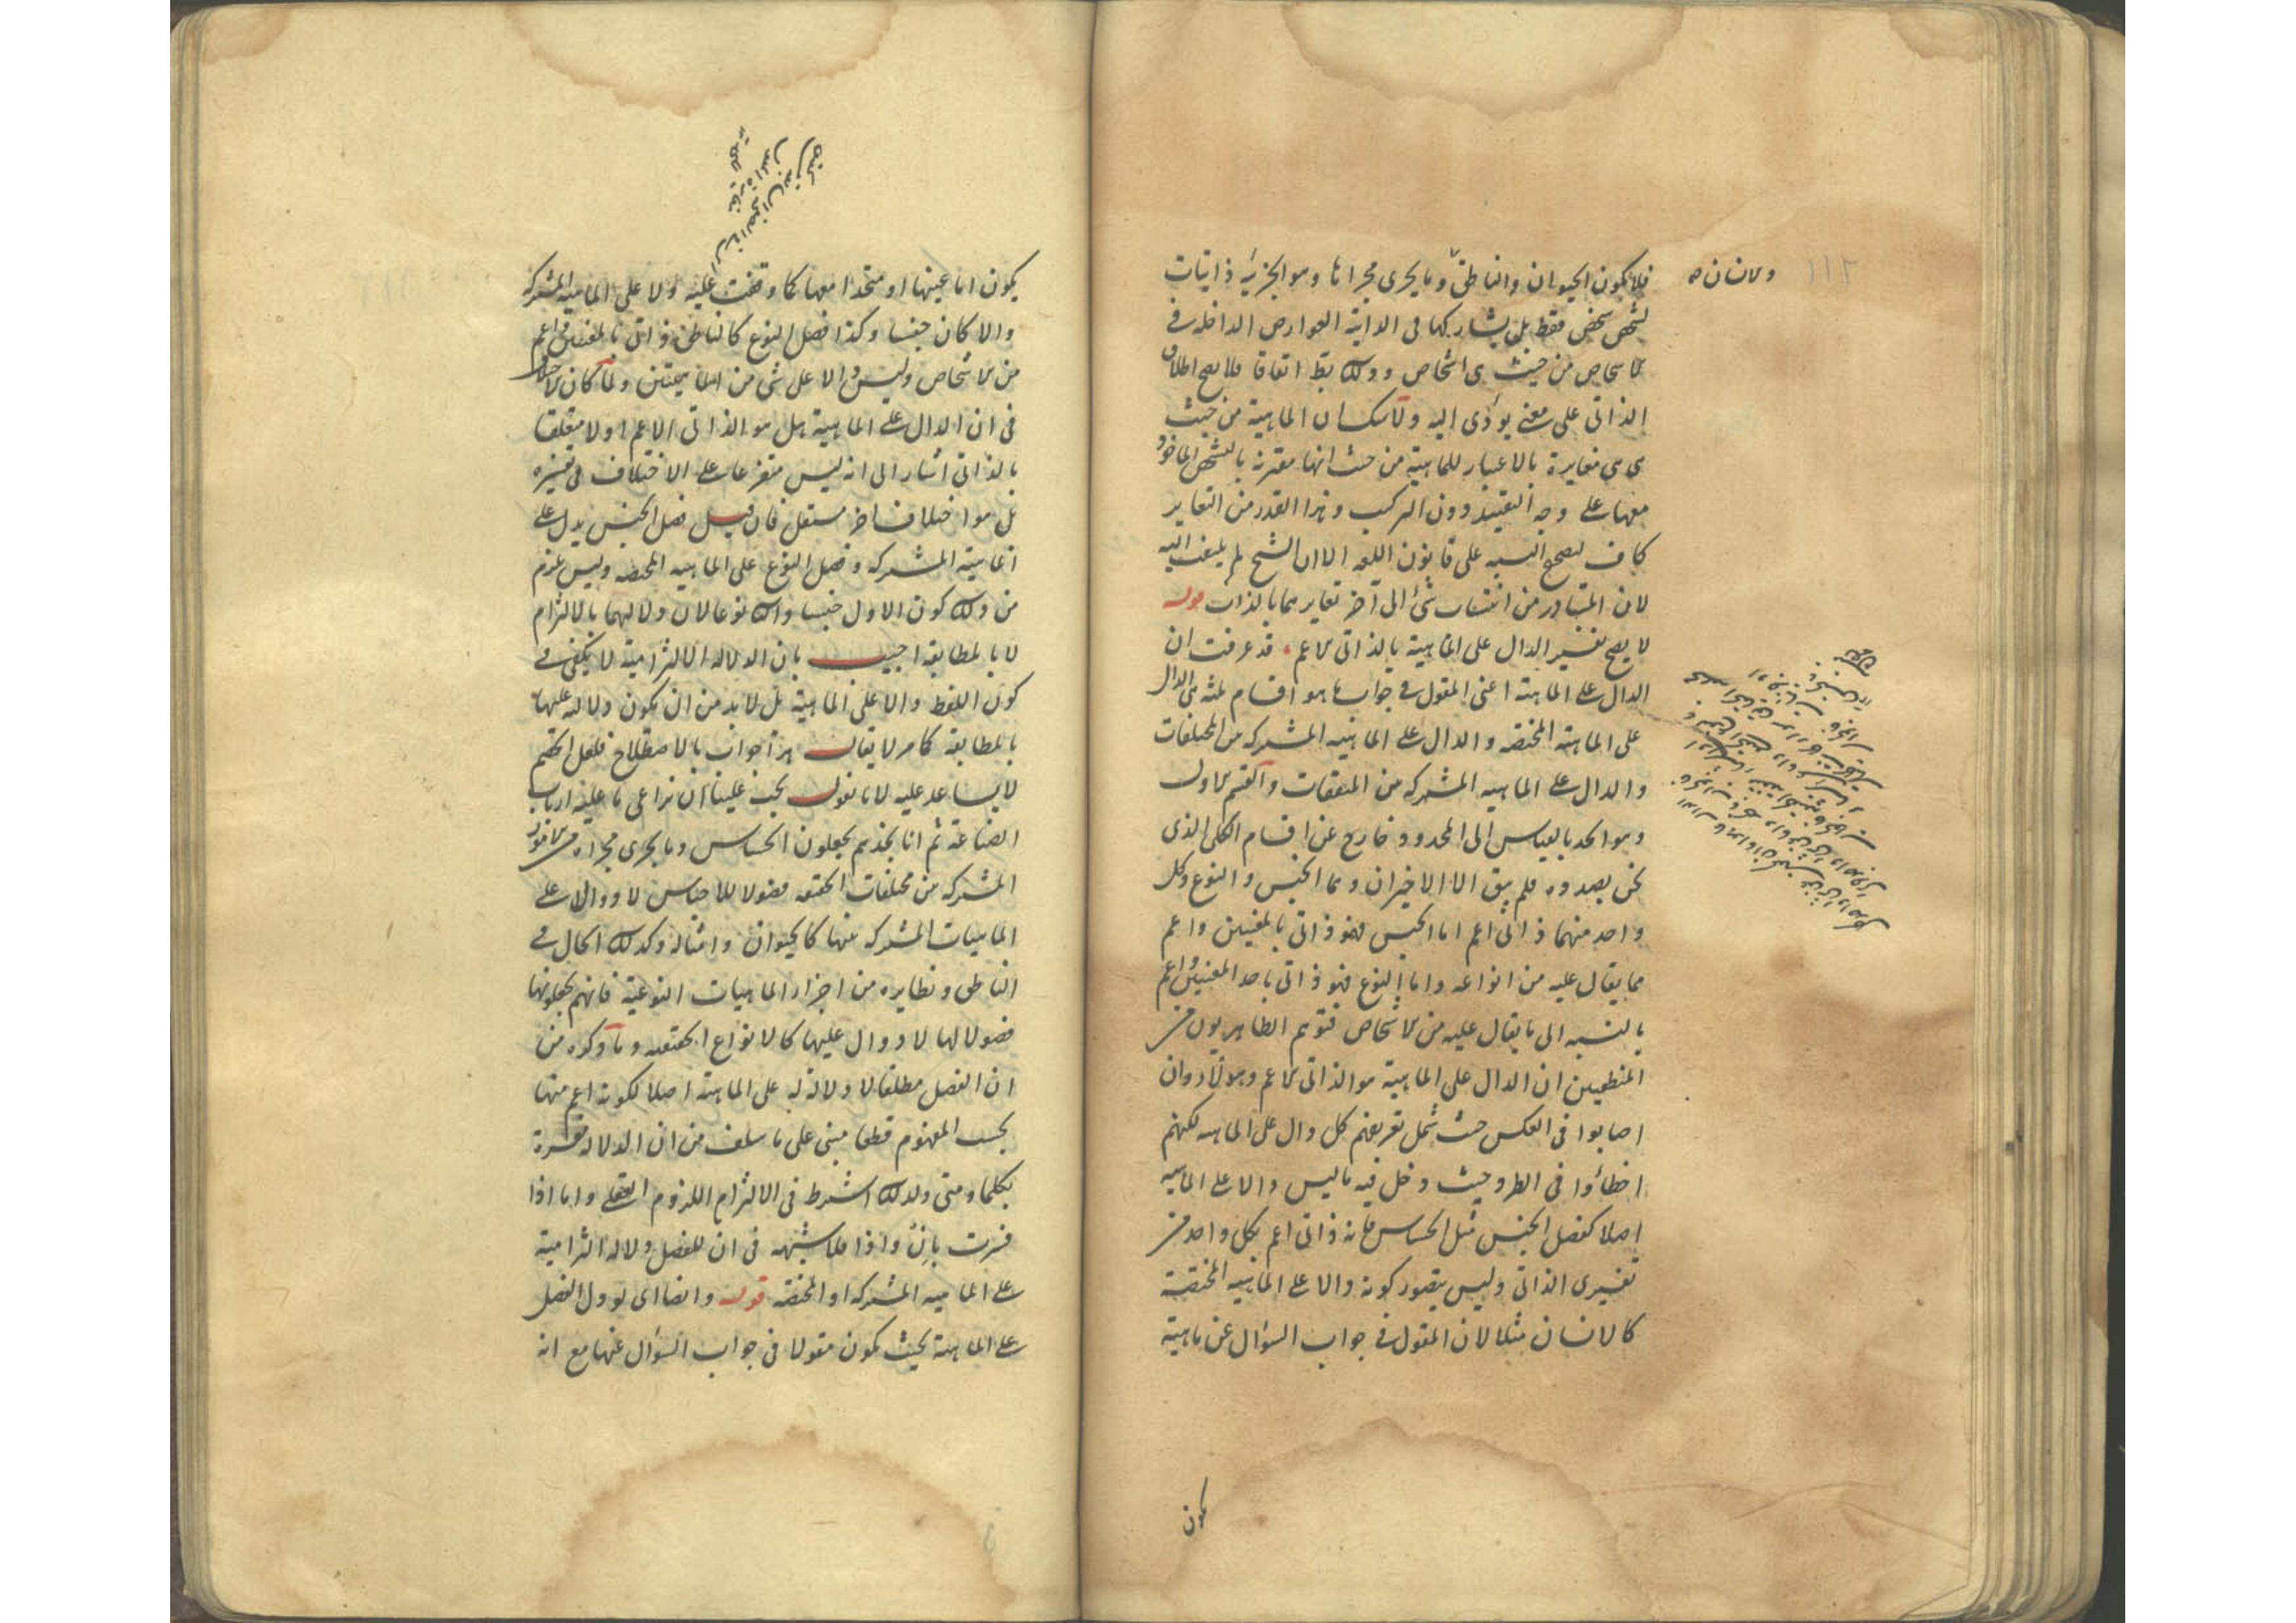 فلا يكون الحيوان والناطق وما يجرى مجراها وهو الجزئية ذاتيات
ولانسان ه
١١٢
لشخص شخص فقط بل يشاركها فى الذاتية العوارض الداخلة فى
الاشخاص من حيث هى اشخاص وذلك بط اتفاقا فلا يصح اطلاق
الذاتى على معنى يؤدى اليه ولاشك ان الماهية من حيث
هى هى مغايرة بالاعتبار للماهية من حيث انها مقترنة بالتشخص الماخوذ
معها على وجه التقييد دون التركيب وهذا القدر من التغاير
كاف لتصحيح النسبة على قانون اللغة الا ان الشيخ لم يلتفت اليه
لان المتبادر من انتساب شئ الى اخر تغايرهما بالذات قوله
لا يصح تفسير الدال على الماهية بالذاتى الاعم قد عرفت ان
الدال على الماهية اعنى المقول فى جواب ما هو اقسام ثلثة هى الدال
على الماهية المختصة والدال على الماهية المشتركة من المختلفات
والدال على الماهية المشتركة من المتفقات والقسم الاول
وهو الحد بالقياس الى المحدود خارج عن اقسام الكلى الذى
نحن بصدده فلم يبق الا الاخيران وهما الجنس والنوع وكل
واحد منهما ذاتى اعم اما الجنس فهو ذاتى بالمعنيين واعم
مما يقال عليه من انواعه واما النوع فهو ذاتى باحد المعنيين واعم
بالنسبة الى ما يقال عليه من الاشخاص فتوهم الظاهريون من
المنطقيين ان الدال على الماهية هو الذاتى الاعم وهؤلاء وان
اصابوا فى العكس حيث شمل تعريفهم كل دال على الماهية لكنهم
اخطاؤا فى الطرد حيث دخل فيه ما ليس دالا على الماهية
اصلا كفصل الجنس مثل الحساس فانه ذاتى اعم بكل واحد من
تفسيرى الذاتى وليس يتصور كونه دالا على الماهية المختصة
كالانسان مثلا لان المقول فى جواب السؤال عن ماهية
يكون
يكون اما عينها او متحدا معها كما وقفت عليه ولا على الماهية المشتركة
والا كان جنسا وكذا فصل النوع كالناطق ذاتى بالمعنيين واعم
من الاشخاص وليس دالا على شئ من الماهيتين ولما كان الاختلاف
فى ان الدال على الماهية هل هو الذاتى الاعم او لا متعلقا
بالذاتى اشار الى انه ليس متفرعا على الاختلاف فى تفسيره
بل هو اختلاف اخر مستقل فان قيل فصل الجنس يدل على
الماهية المشتركة وفصل النوع على الماهية المختصة وليس يلزم
من ذلك كون الاول جنسا والثانى نوعا لان دلالتهما بالالتزام
لا بالمطابقة اجيب بان الدلالة الالتزامية لا تكفى فى
كون اللفظ دالا على الماهية بل لا بد من ان يكون دلالته عليها
بالمطابقة كما مر لا يقال هذا جواب بالاصطلاح فلعل الخصم
لا يساعد عليه لانا نقول يجب علينا ان نراعى ما عليه ارباب
الصناعة ثم انا نجدهم يجعلون الحساس وما يجرى مجراه من الامور
المشتركة من مختلفات الحقيقة فصولا للاجناس لا دوالا على
الماهيات المشتركة منها كالحيوان وامثاله وكذلك الحال فى
الناطق ونظايره من اجزاء الماهيات النوعية فانهم يجعلونها
فصولا لها لا دوال عليها كالانواع الحقيقية وما ذكره من
ان الفصل مطلقا لا دلالة له على الماهية اصلا لكونه اعم منها
بحسب المفهوم قطعا مبنى على ما سلف من ان الدلالة مفسرة
بكلما ومتى ولذلك اشترط فى الالتزام اللزوم العقلى واما اذا
فسرت بان واذا فلا شبهة فى ان للفصل دلالة التزامية
على الماهية المشتركة او المختصة قوله وايضا اى لو دل الفصل
على الماهية بحيث يكون مقولا فى جواب السؤال عنها مع انه